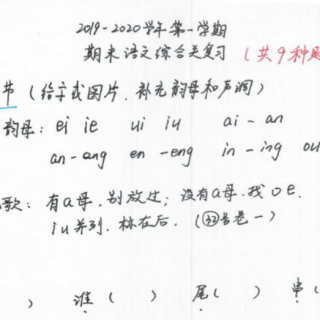 2019-2020学年第一学期
期末语文综合类复习 (共9种题
节 (给字或图片,补充韵母和声调)
韵母: ei ie ui iu ai - an
an-ang en-eng in-ing ou
歌: 有a母,别放过; 没有a母,找oe.
iu并列,标在后.
) 谁( ) 尾( ) 串(